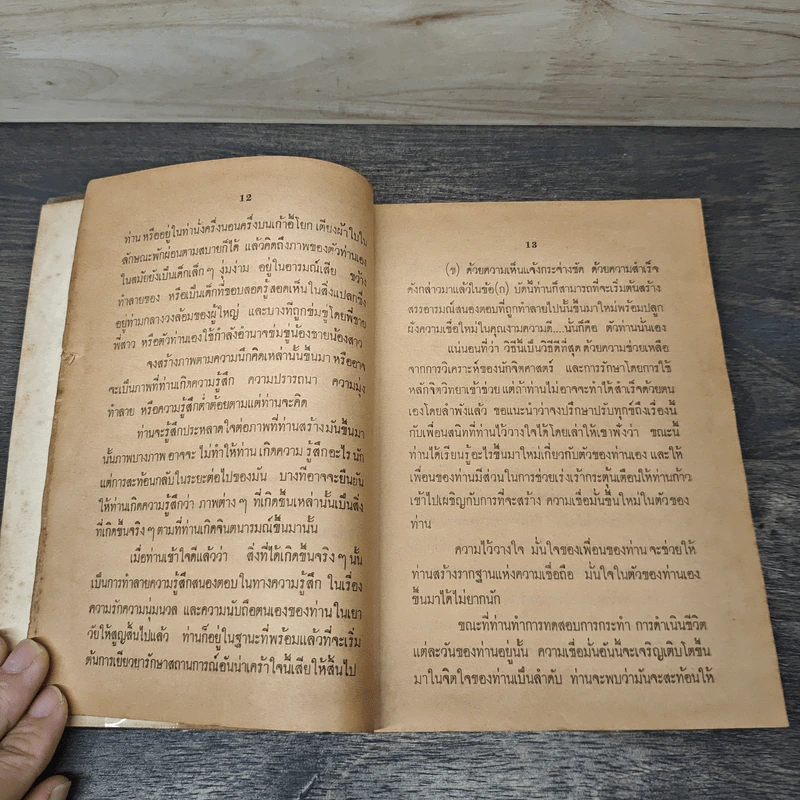 12
ท่าน หรืออยู่ในท่านั่งครึ่งนอนครึ่งบนเก้าอี้โยก เตียงผ้าใบใน
ลักษณะพักผ่อนตามสบายก็ได้ แล้วคิดถึงภาพของตัวท่านเอง
ในสมัยยังเป็นเด็กเล็ก ๆ งุ่มง่าม อยู่ในอารมณ์เสีย ขว้าง
ทำลายของ หรือเป็นเด็กที่ชอบสอดรู้สอดเห็นในสิ่งแปลกซึ่ง
อยู่ท่ามกลางวงล้อมของผู้ใหญ่ และบางทีถูกข่มขู่โดยพี่ชาย
พี่สาว หรือตัวท่านเองใช้กำลังอำนาจข่มขู่น้องชายน้องสาว
จงสร้างภาพตามความนึกคิดเหล่านั้นขึ้นมา หรืออาจ
จะเป็นภาพที่ท่านเกิดความรู้สึก ความปรารถนา ความมุ่ง
ทำลาย หรือความรู้สึกต่ำต้อยตามแต่ท่านจะคิด
ท่านจะรู้สึกประหลาดใจต่อภาพที่ท่านสร้างมันขึ้นมา
นั้นภาพบางภาพ อาจจะ ไม่ทำให้ท่าน เกิดความ รู้สึกอะไร นัก
แต่การสะท้อนกลับในระยะต่อไปของมัน บางทีอาจจะยืนยัน
ให้ท่านเกิดความรู้สึกว่า ภาพต่าง ๆ ที่เกิดขึ้นเหล่านั้นเป็นสิ่ง
ที่เกิดขึ้นจริง ๆ ตามที่ท่านเกิดจินตนารมณ์ขึ้นมานั้น
เมื่อท่านเข้าใจดีแล้วว่า สิ่งที่ได้เกิดขึ้นจริง ๆ นั้น
เป็นการทำลายความรู้สึกสนองตอบ ในทางความรู้สึก ในเรื่อง
ความรักความนุ่มนวล และความนับถือตนเองของท่าน ในเยา
วัยให้สูญสิ้นไปแล้ว ท่านก็อยู่ในฐานะที่พร้อมแล้วที่จะเริ่ม
ต้นการเยียวยารักษาสถานการณ์อันน่าเศร้าใจนี้เสียให้สิ้นไป
13
(ข) ด้วยความเห็นแจ้งกระจ่างชัด ด้วยความสำเร็จ
ดังกล่าวมาแล้วในข้อ(ก) บัดนี้ท่านก็สามารถที่จะเริ่มต้นสร้าง
สรรอารมณ์สนองตอบที่ถูกทำลายไปนั้นขึ้นมาใหม่พร้อมปลูก
ฝังความเชื่อใหม่ในคุณงามความดี....นั่นก็คือ ตัวท่านนั่นเอง
แน่นอนที่ว่า วิธีนี้เป็นวิธีดีที่สุด ด้วยความช่วยเหลือ
จากการวิเคราะห์ของนักจิตศาสตร์ และการรักษาโดยการใช้
หลักจิตวิทยาเข้าช่วย แต่ถ้าท่านไม่อาจจะทำได้สำเร็จด้วยตน
เองโดยลำพังแล้ว ขอแนะนำว่าจงปรึกษาปรับทุกข์ถึงเรื่องนี้
กับเพื่อนสนิทที่ท่านไว้วางใจได้โดยเล่าให้เขาฟังว่า ขณะนี้
ท่านได้เรียนรู้อะไรขึ้นมาใหม่เกี่ยวกับตัวของท่านเอง และให้
เพื่อนของท่านมีส่วนในการช่วยเร่งเร้ากระตุ้นเตือนให้ท่านก้าว
เข้าไปเผชิญกับการที่จะสร้าง ความเชื่อมั่นขึ้นใหม่ในตัวของ
ท่าน
ความไว้วางใจ มั่นใจของเพื่อนของท่าน จะช่วยให้
ท่านสร้างรากฐานแห่งความเชื่อถือ มั่นใจในตัวของท่านเอง
ขึ้นมาได้ไม่ยากนัก
ขณะที่ท่านทำการทดสอบการกระทำ การดำเนินชีวิต
แต่ละวันของท่านอยู่นั้น ความเชื่อมั่นอันนี้จะเจริญเติบโตขึ้น
มาในจิตใจของท่านเป็นลำดับ ท่านจะพบว่ามันจะสะท้อนให้